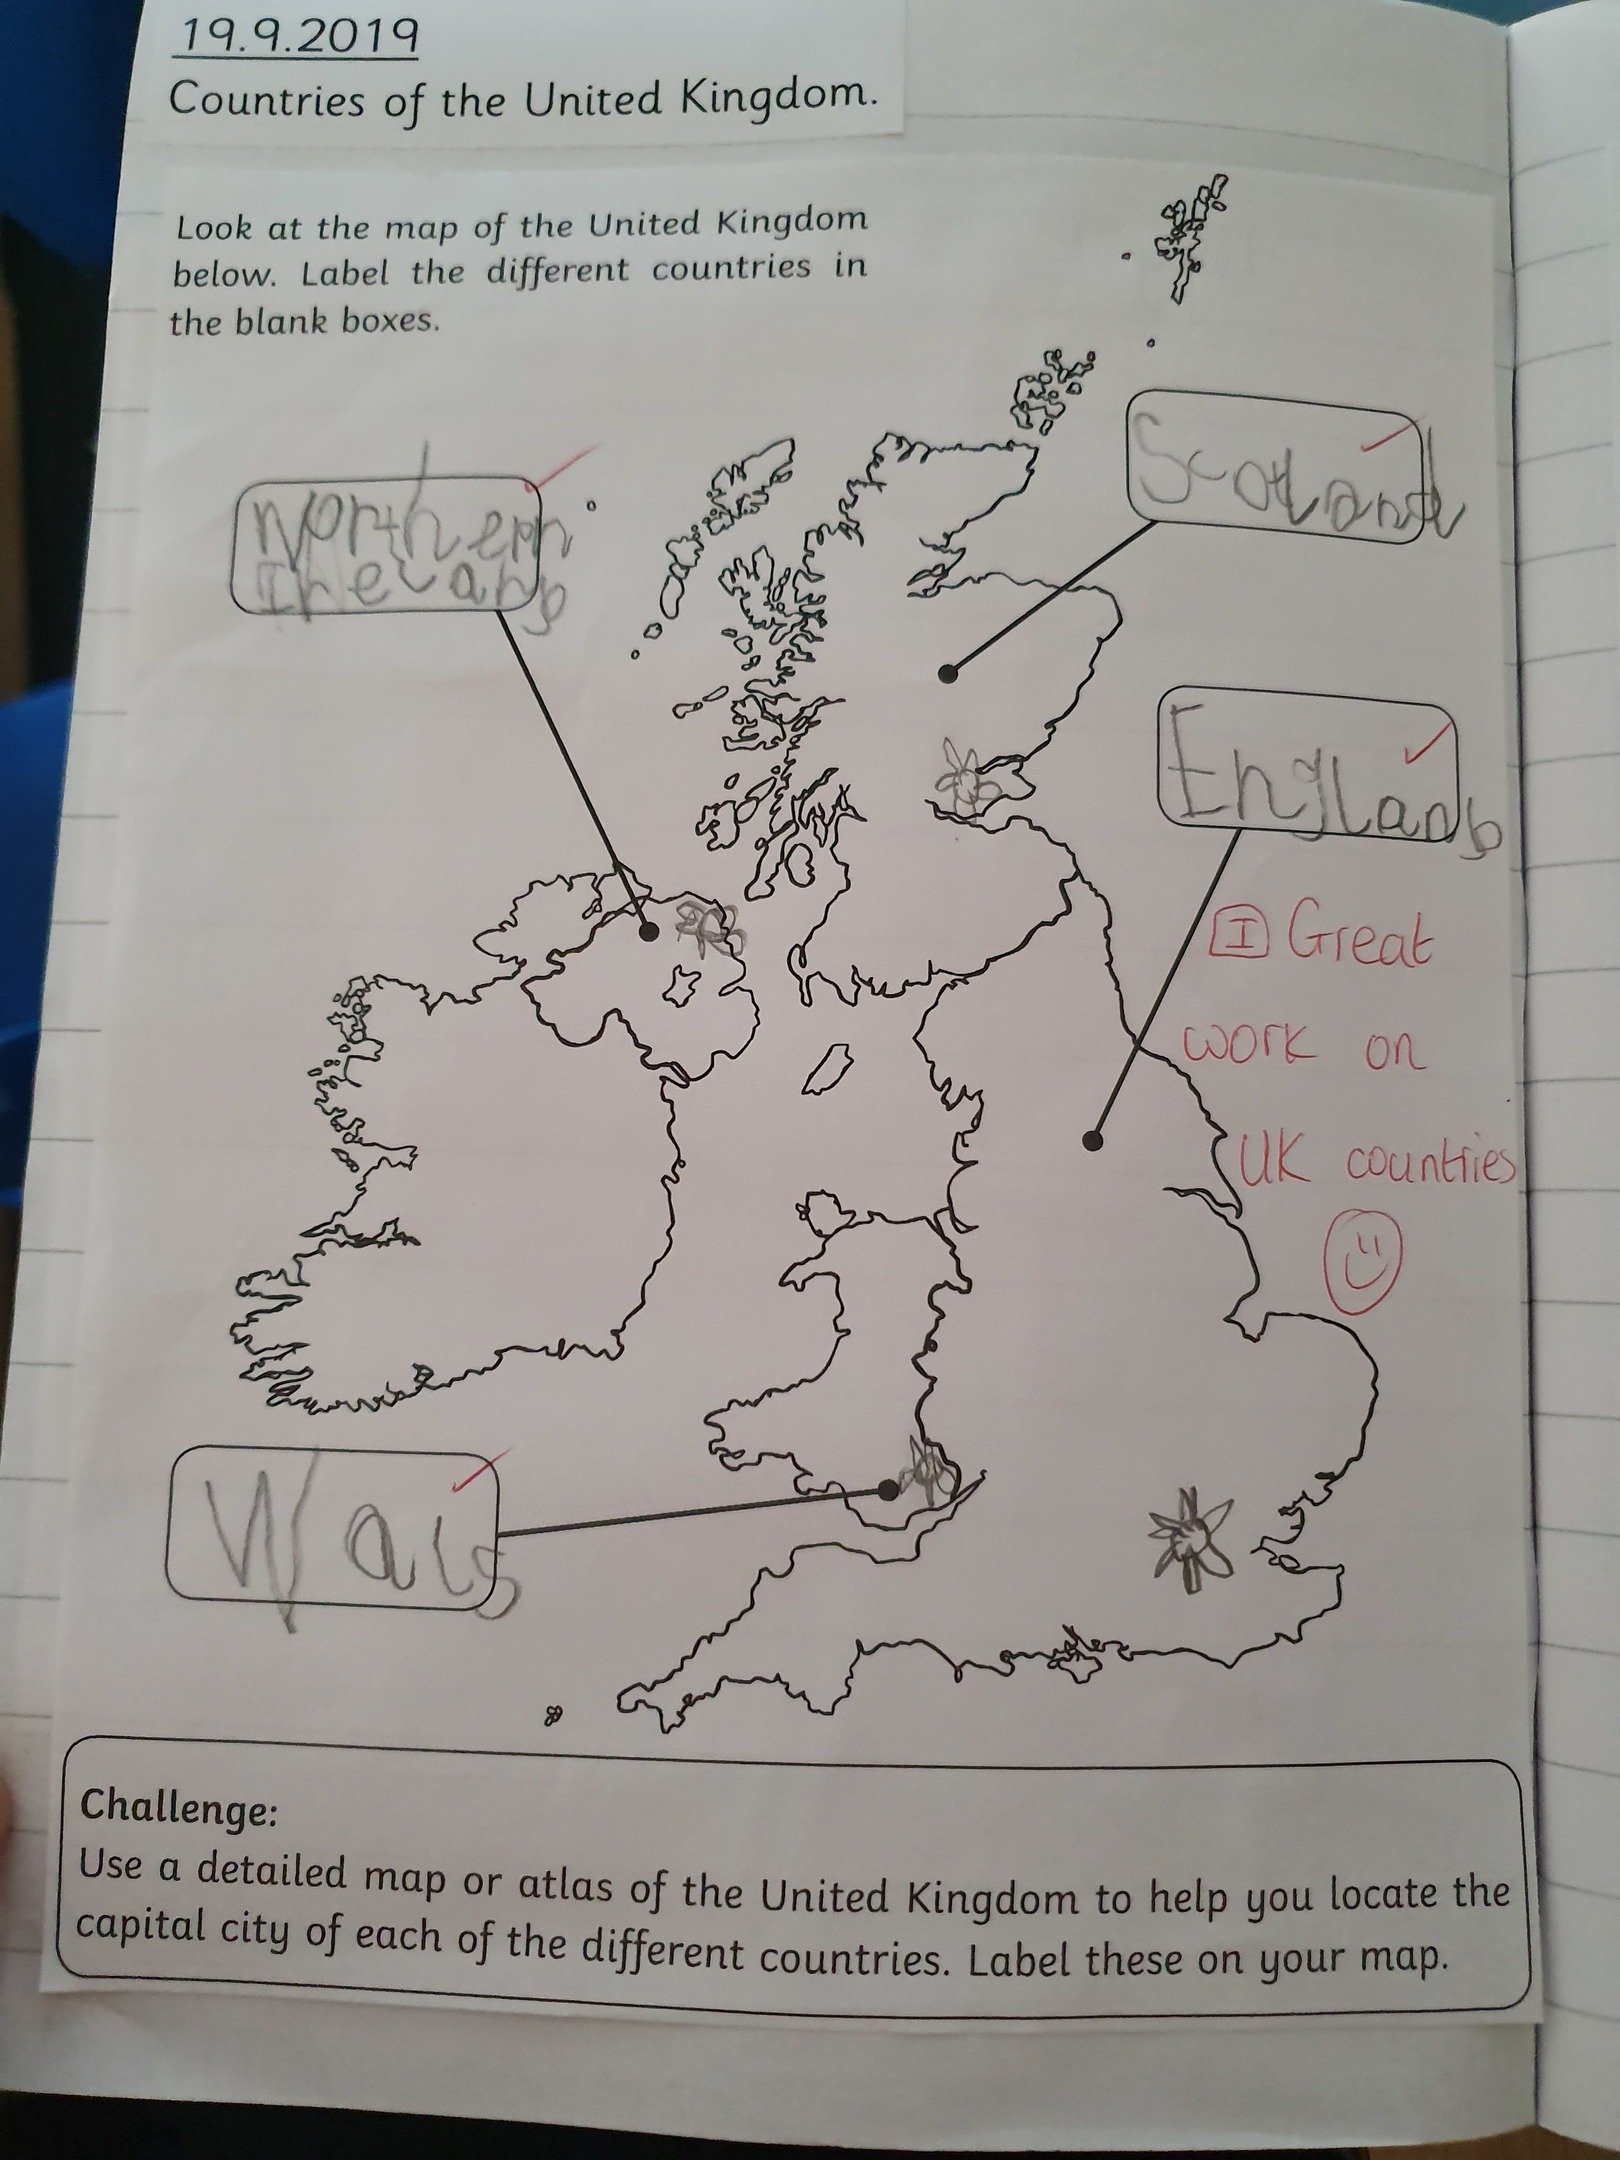 19.9.2019
Countries of the United Kingdom.
Look at the map of the United Kingdom
below. Label the different countries in
the blank boxes.
Scotland
Northern
Irelanb
Englanb
I Great
work on
UK countries
Wals
Challenge:
Use a detailed map or atlas of the United Kingdom to help you locate the
capital city of each of the different countries. Label these on your map.